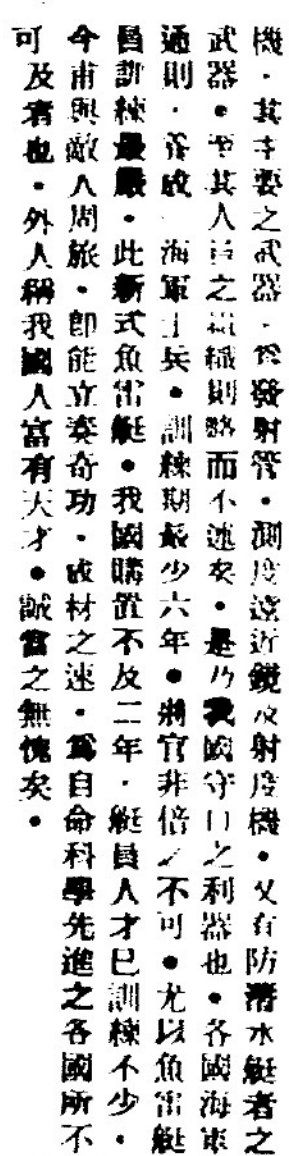 機．其主要之武器．爲發射管．測度遠近鏡及射度機．又有防潛水艇者之
武器．至其人員之組織則略而不述矣．是乃我國守口之利器也．各國海軍
通則．養成一海軍士兵．訓練期最少六年．將官非倍之不可．尤以魚雷艇
員訓練最嚴．此新式魚雷艇．我國購置不及二年．艇員人才已訓練不少．
今甫與敵人周旅．卽能立奏奇功．成材之速．爲自命科學先進之各國所不
可及者也．外人稱我國人富有天才．誠當之無愧矣．